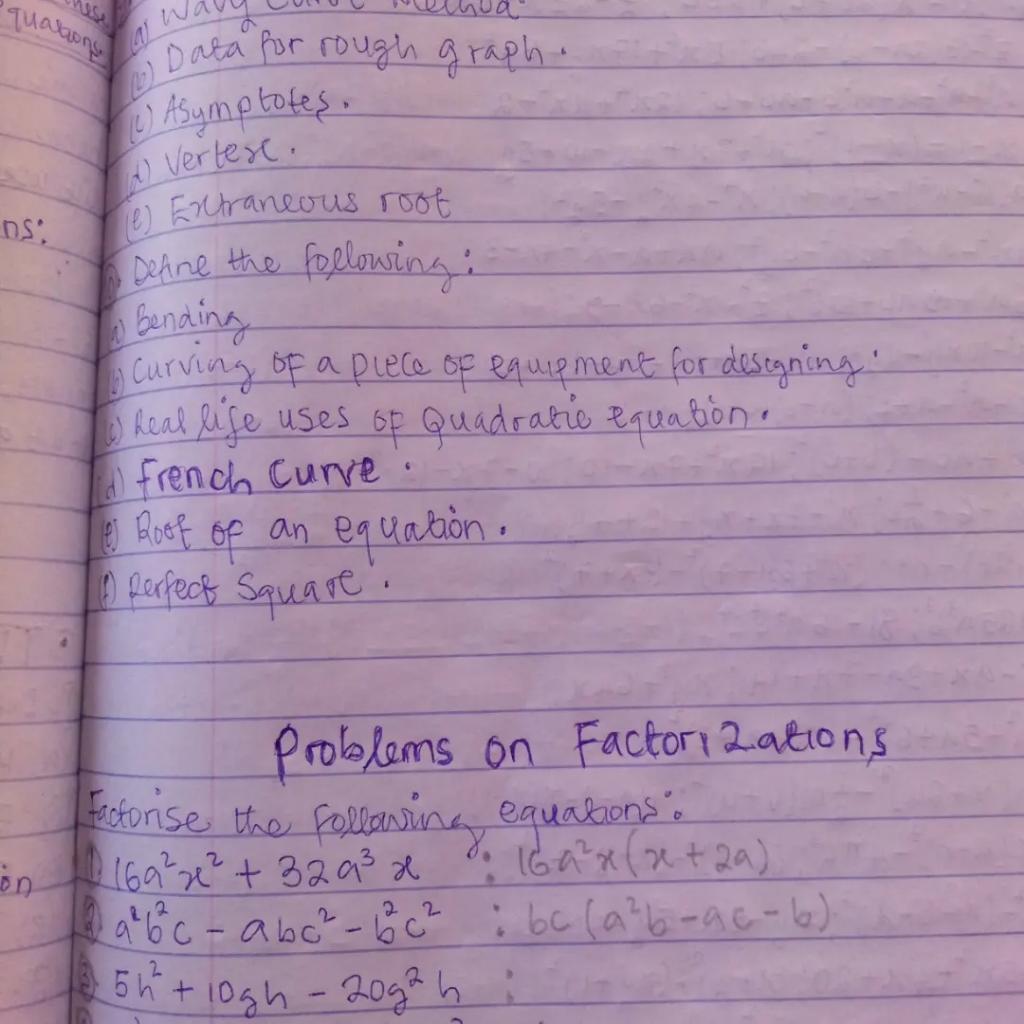 quations
(a) Wavy Curve Method.
(b) Data for rough graph.
(c) Asymptotes.
(d) Vertex.
(e) Extraneous root
ns:
Define the following:
(a) Bending
(b) Curving of a piece of equipment for designing.
(c) Real life uses of Quadratic equation.
(d) French Curve.
(e) Root of an equation.
(f) Perfect Square.
Problems on Factorizations
Factorise the following equations:
(1) 16a²x² + 32a³x : 16a²x(x + 2a)
on
(2) a²b²c - abc² - b²c² : bc(a²b - ac - b)
(3) 5h² + 10gh - 20g²h :